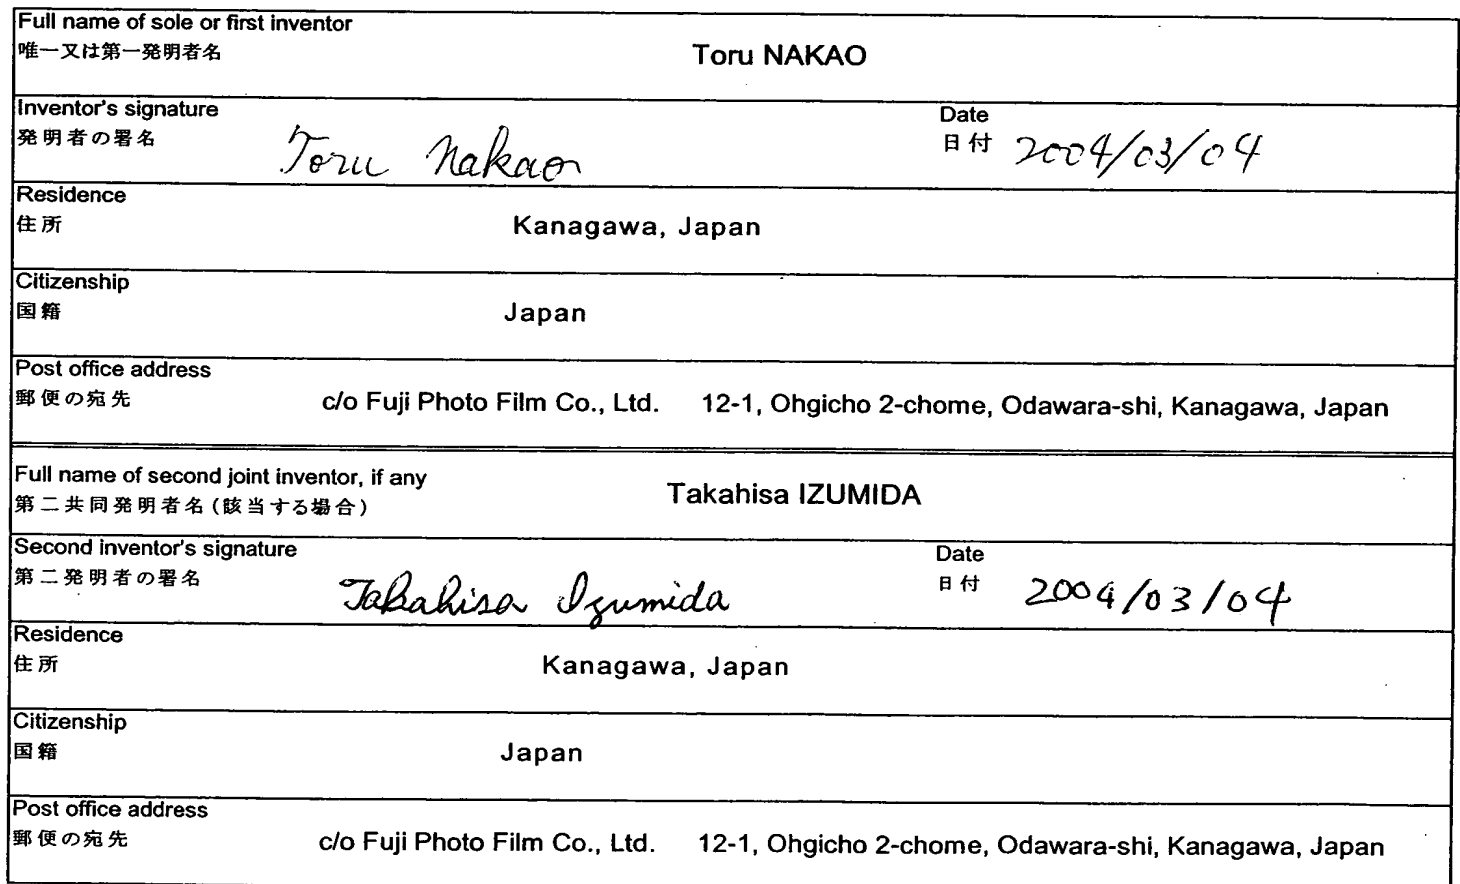 Full name of sole or first inventor
唯一又は第一発明者名
Toru NAKAO
Inventor's signature
発明者の署名
Toru Nakao
Date
日付
2004/03/04
Residence
住所
Kanagawa, Japan
Citizenship
国籍
Japan
Post office address
郵便の宛先
c/o Fuji Photo Film Co., Ltd. 12-1, Ohgicho 2-chome, Odawara-shi, Kanagawa, Japan
Full name of second joint inventor, if any
第二共同発明者名(該当する場合)
Takahisa IZUMIDA
Second inventor's signature
第二発明者の署名
Takahisa Izumida
Date
日付
2004/03/04
Residence
住所
Kanagawa, Japan
Citizenship
国籍
Japan
Post office address
郵便の宛先
c/o Fuji Photo Film Co., Ltd. 12-1, Ohgicho 2-chome, Odawara-shi, Kanagawa, Japan